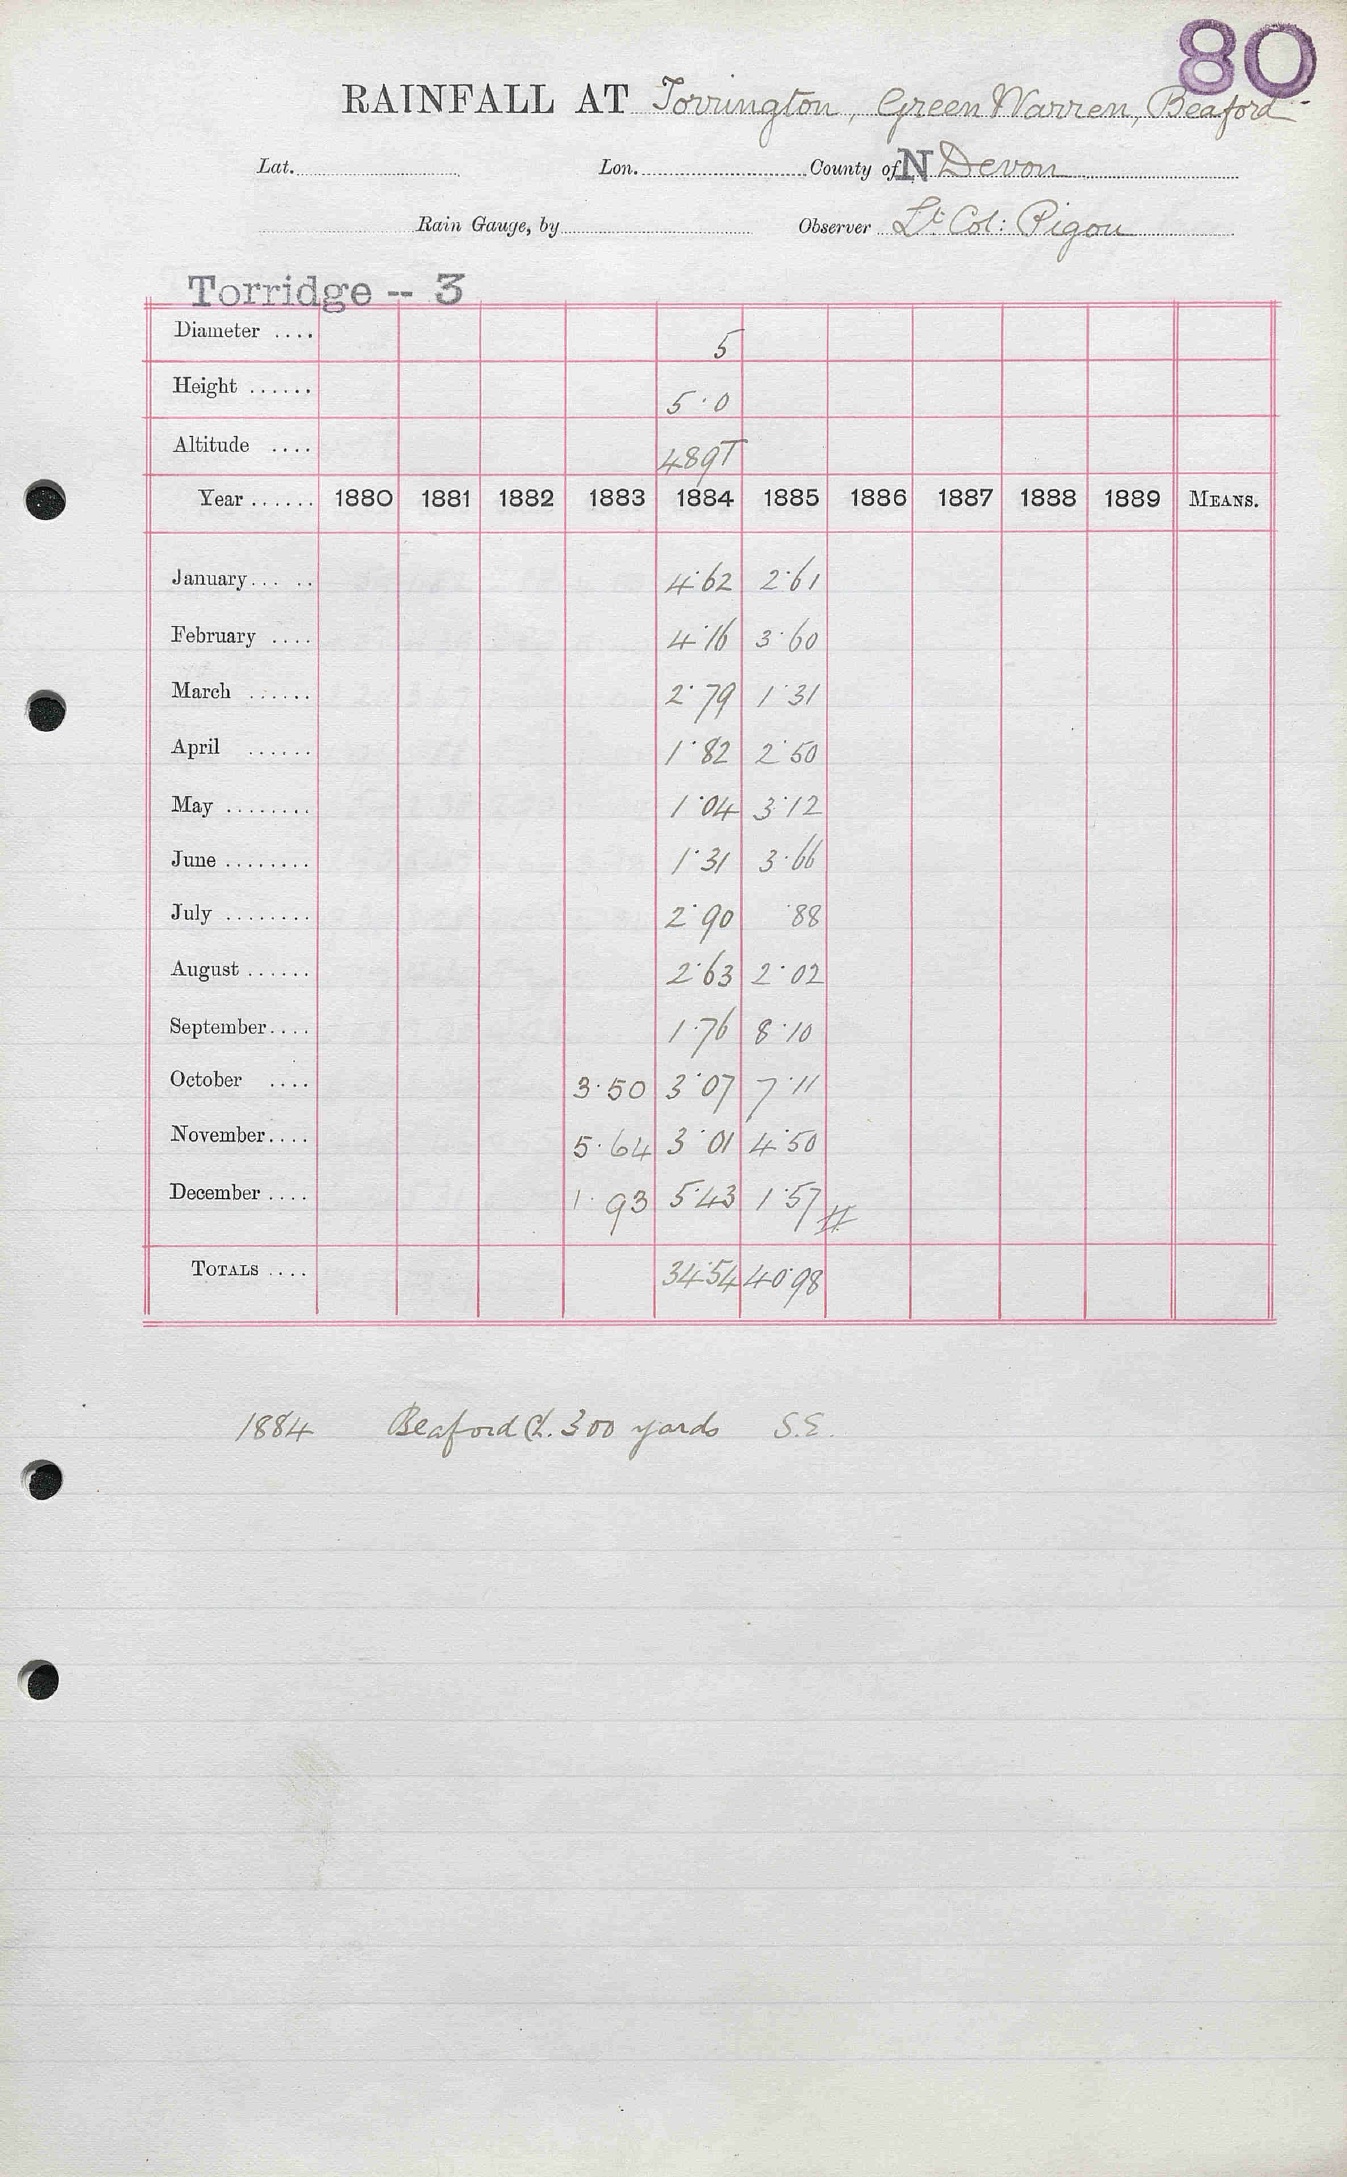 80
RAINFALL AT Torrington, Green Warren, Beaford
Lat. Lon. County of N Devon
Rain Gauge, by Observer Lt Col: Pigou
Torridge -- 3
Diameter .... 5
Height ...... 5·0
Altitude .... 489T
Year ...... 1880 1881 1882 1883 1884 1885 1886 1887 1888 1889 MEANS.
January... .. 4·62 2·61
February .... 4·16 3·60
March ...... 2·79 1·31
April ...... 1·82 2·50
May ........ 1·04 3·12
June ........ 1·31 3·66
July ........ 2·90 ·88
August ...... 2·63 2·02
September.... 1·76 8·10
October .... 3·50 3·07 7·11
November.... 5·64 3·01 4·50
December .... 1·93 5·43 1·57 //
TOTALS .... 34·54 40·98
1884 Beaford Ch. 300 yards S.E.